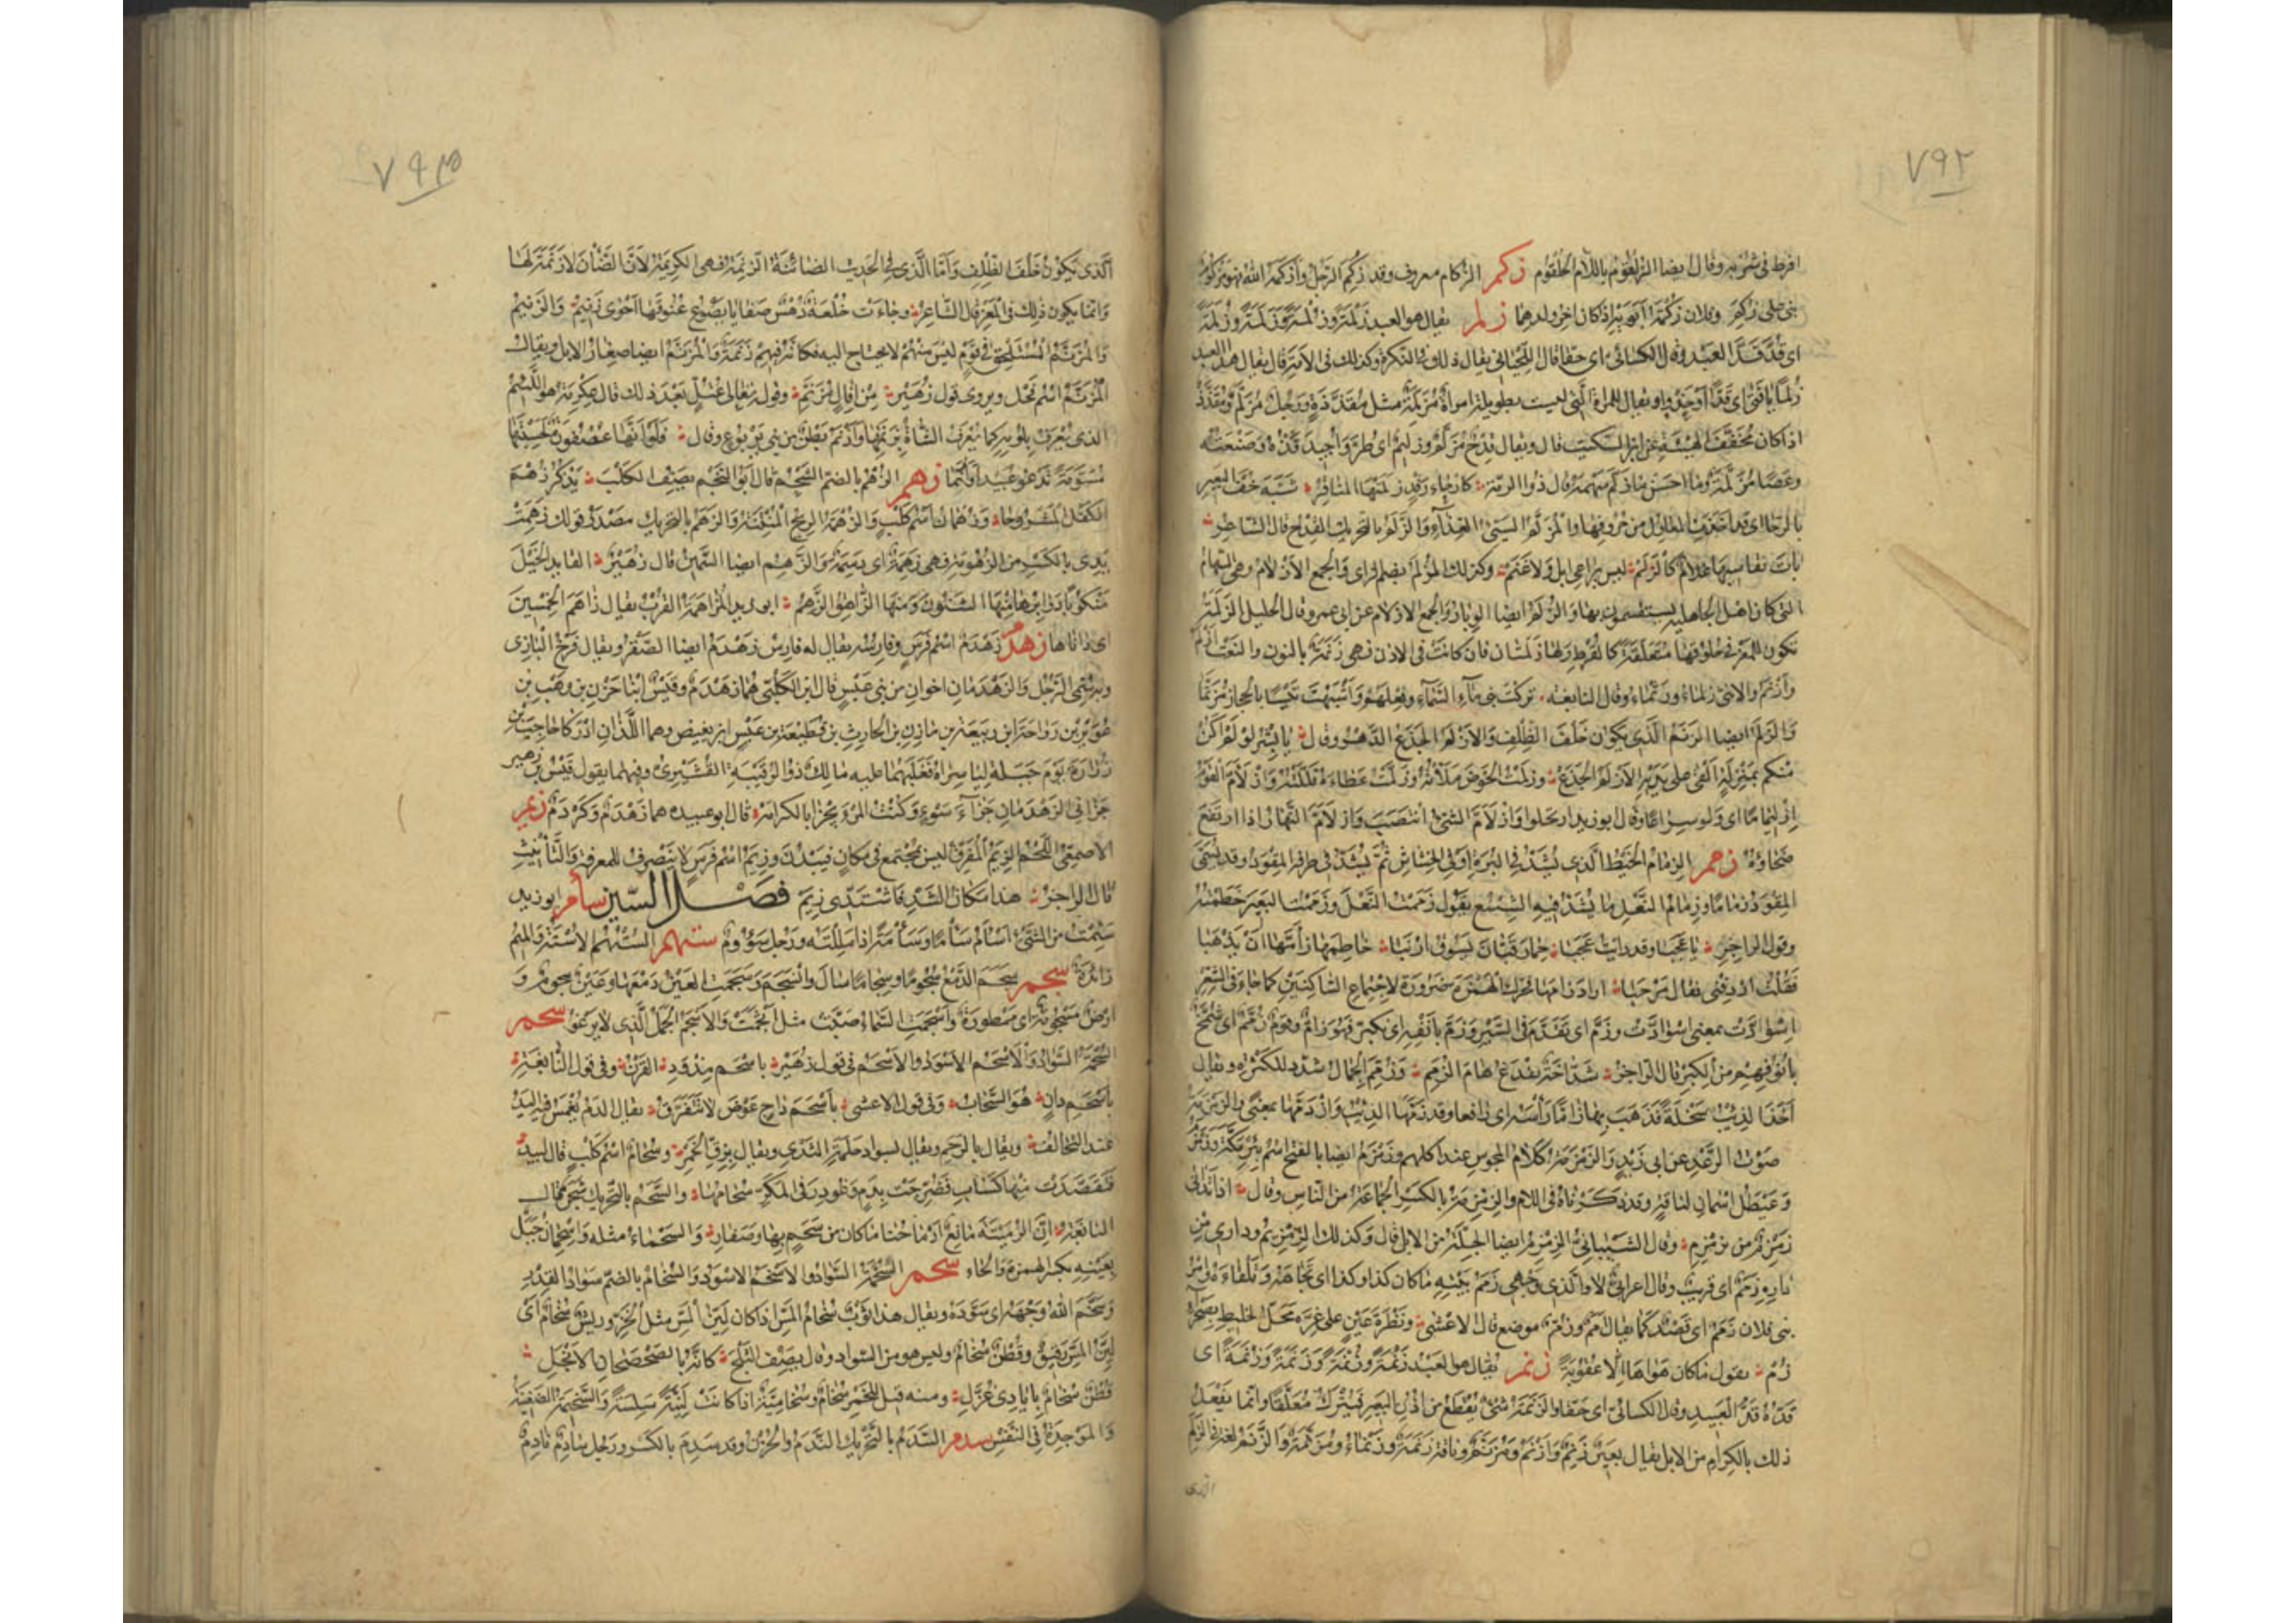 ٧٩٢
افرط فى شربه وقال ايضا الزلقوم باللام الحلقوم زكم الزكام معروف وقد زكم الرجل وأزكمه الله فهو مزكوم
بنى على زكم وفلان زكمة ابويه اذا كان اخر ولدهما زلم يقال هو العبد زلمة وزلمة وزلمة وزلمة
اى قد قد العبد وقال الكسائى اى حقا قال اللحيانى يقال ذلك فى النكرة وكذلك فى الامة قال يقال هذا العبد
زلما يا فتى اى قدا وحذوا ويقال للمراة التى ليست بطويلة امراة مزلمة مثل مقذذة ورجل مزلم ومقذذ
اذا كان مخفف الهيئة عن ابن السكيت قال ويقال قدح مزلم وزليم اى طر واجيد قده وصنعته
وعصا مزلمة وما احسن ما زلم سهمه قال ذو الرمة كارحاء رقد زلمتها المناقر شبه خف البعير
بالرحا اى قد اخذت المناقر من حروفها والمزلم السيئ الغذاء والزلم بالتحريك القدح قال الشاعر
بات يقاسيها غلام كالزلم ليس براعى ابل ولا غنم وكذلك الزلم بضم الزاى والجمع الازلام وهى السهام
التى كان اهل الجاهلية يستقسمون بها والزلم ايضا الوبار والجمع الازلام عن ابى عمرو وقال الخليل الزلمة
تكون للمعز فى حلوقها متعلقة كالقرط ولها زلمتان فان كانت فى الاذن فهى زنمة بالنون والنعت ازلم
وازنم والانثى زلماء وزنماء وقال النابغة تركت بنى ماء السماء وفعلهم واشبهت تيسا بالحجاز مزنما
والزلم ايضا الزنم الذى يكون خلف الظلف والازلم الجذع الدهر وقال يا بشر لو لم اكن
منكم بمنزلة القى على يديه الازلم الجذع وزلمت الحوض ملاته وزلمت عطاءه قللته وازلأم القوم
ازليماما اى ولوا سراعا وقال ابو زيد ارتحلوا وازلأم الشئ انتصب وازلأم النهار اذا ارتفع
ضحاؤه زمم الزمام الخيط الذى يشد فى البرة او فى الخشاش ثم يشد فى طرفه المقود وقد يسمى
المقود زماما وزمام النعل ما يشد فيه الشسع تقول زممت النعل وزممت البعير خطمته
وقول الراجز يا عجبا وقد رايت عجبا حمار قبان يسوق ارنبا خاطمها زأمها ان يذهبا
فقلت اردفنى فقال مرحبا اراد زامها فحرك الهمزة ضرورة لاجتماع الساكنين كما جاء فى الشعر
اسوأدت بمعنى اسوادت وزم اى تقدم فى السير وزم بانفه اى تكبر فهو زام وقوم زمم اى شمخ
بانوفهم من الكبر قال الراجز شداخة يفدغ هام الزمم وزمم الجمال شدد للكثرة ويقال
اخذ الذيب سخلة فذهب بها زاما راسه اى رافعا وقد زمها الذيب وازدمها بمعنى والزمزمة
صوت الرعد عن ابى زيد والزمزمة كلام المجوس عند اكلهم وزمزم ايضا بالفتح اسم بئر مكة وزمزم
وعيطل اسمان لناقة وقد ذكرناه فى اللام والزمزمة بالكسر الجماعة من الناس وقال اذا تدانى
زمزم من زمزم وقال الشيبانى الزمزيم ايضا الجلة من الابل قال وكذلك الزمزيم ودارى من
داره زمم اى قريب وقال اعرابى لا والذى وجهى زمم بيته ما كان كذا وكذا اى تجاهه وتلقاءه وامر
بنى فلان زمم اى قصد كما يقال امم وزم موضع قال الاعشى ونظرة عين على غرة محل الخليط بصحراء
زم يقول ما كان هواها الا عقوبة زنم يقال هو العبد زنمة وزنمة وزنمة وزنمة اى
قده قد العبيد وقال الكسائى اى حقا والزنمة شئ يقطع من اذن البعير فيترك معلقا وانما يفعل
ذلك بالكرام من الابل يقال بعير زنم وازنم ومزنم وناقة زنمة وزنماء ومزنمة والزنم لغة فى الزلم
الذى
٧٩٣
الذى يكون خلف الظلف واما الذى فى الحديث الضائنة الزنمة فهى الكريمة لان الضان لا زنمة لها
وانما يكون ذلك فى المعز قال الشاعر وجاءت خلعة دهس صفايا يصوع عنوقها احوى زنيم والزنيم
والمزنم المستلحق فى قوم ليس منهم لا يحتاج اليه فكانه فيهم زنمة والمزنم ايضا صغار الابل ويقال
المزنم اسم فحل ويروى قول زهير من افال مزنم وقوله تعالى عتل بعد ذلك قال عكرمة هو اللئيم
الذى يعرف بلؤمه كما تعرف الشاة بزنمتها وازنم بطن من بنى يربوع وقال فلو انها عصفورة لحسبتها
مسومة تدعو عبيدا وازنما زهم الزهم بالضم الشحم قال ابو النجم يصف الكلب يذكر زهم
الكفل المشروحا وزهمان اسم كلب والزهمة الريح المنتنة والزهم بالتحريك مصدر قولك زهمت
يدى بالكسر من الزهومة فهى زهمة اى دسمة والزهم ايضا السمين قال زهير القايد الخيل
منكوبا دوابرها منها الشنون ومنها الزاهق الزهم ابو زيد المزاهمة القرب يقال زاهم الخمسين
اى داناها زهدم زهدم اسم فرس وفارسه يقال له فارس زهدم ايضا الصقر ويقال فرخ البازى
وبه سمى الرجل والزهدمان اخوان من بنى عبس قال ابن الكلبى هما زهدم وقيس ابنا حزن بن وهب بن
عوير بن رواحة ابن ربيعة بن مازن بن الحارث بن قطيعة بن عبس ابن بغيض وهما اللذان ادركا حاجب بن
زرارة يوم جبلة لياسراه فغلبهما عليه مالك ذو الرقيبة القشيرى وفيهما يقول قيس بن زهير
جزانى الزهدمان جزاء سوء وكنت المرء يجزا بالكرامة قال ابو عبيدة هما زهدم وكردم زيم
الاصمعى اللحم الزيم المتفرق ليس بمجتمع فى مكان فيبدن وزيم اسم فرس لا ينصرف للمعرفة والتأنيث
قال الراجز هذا مكان الشد فاشتدى زيم فصل السين سأم ابو زيد
سئمت من الشئ اسأم سأما وسأمة اذا مللته ورجل سؤوم ستهم الستهم الاسته والميم
زائدة سجم سجم الدمع سجوما وسجاما سال وانسجم وسجمت العين دمعها وعين سجوم و
ارض مسجومة اى ممطورة واسجمت السماء صبت مثل اثجمت والاسجم الجمل الذى لا يرغو سحم
السحمة السواد والاسحم الاسود والاسحم فى قول زهير باسحم مذود القرن وفى قول النابغة
باسحم دان هو السحاب وفى قول الاعشى باسحم داج عوض لا نتفرق يقال الدم يغمس فيه اليد
عند التحالف ويقال بالرحم ويقال بسواد حلمة الثدى ويقال بزق الخمر وسحام اسم كلب قال لبيد
فتقصدت منها كساب فضرجت بدم وغودر فى المكر سحامها والسحم بالتحريك شجر قال
النابغة ان الرميثة مانع ارماحنا ما كان من سحم بها وصفار والسحماء مثله واسحمان جبل
بعينه بكسر الهمزة والحاء سخم السخمة السواد والاسخم الاسود والسخام بالضم سواد القدر
وسخم الله وجهه اى سوده ويقال هذا ثوب سخام المس اذا كان لين المس مثل الخز وريش سخام اى
لين المس رقيق وقطن سخام وليس هو من السواد وقال يصف الثلج كانه بالصحصحان الانجل
قطن سخام بايادى غزل ومنه قيل للخمر سخام وسخامية اذا كانت لينة سلسة والسخيمة الضغينة
والموجدة فى النفس سدم السدم بالتحريك الندم والحزن وقد سدم بالكسر ورجل سادم نادم